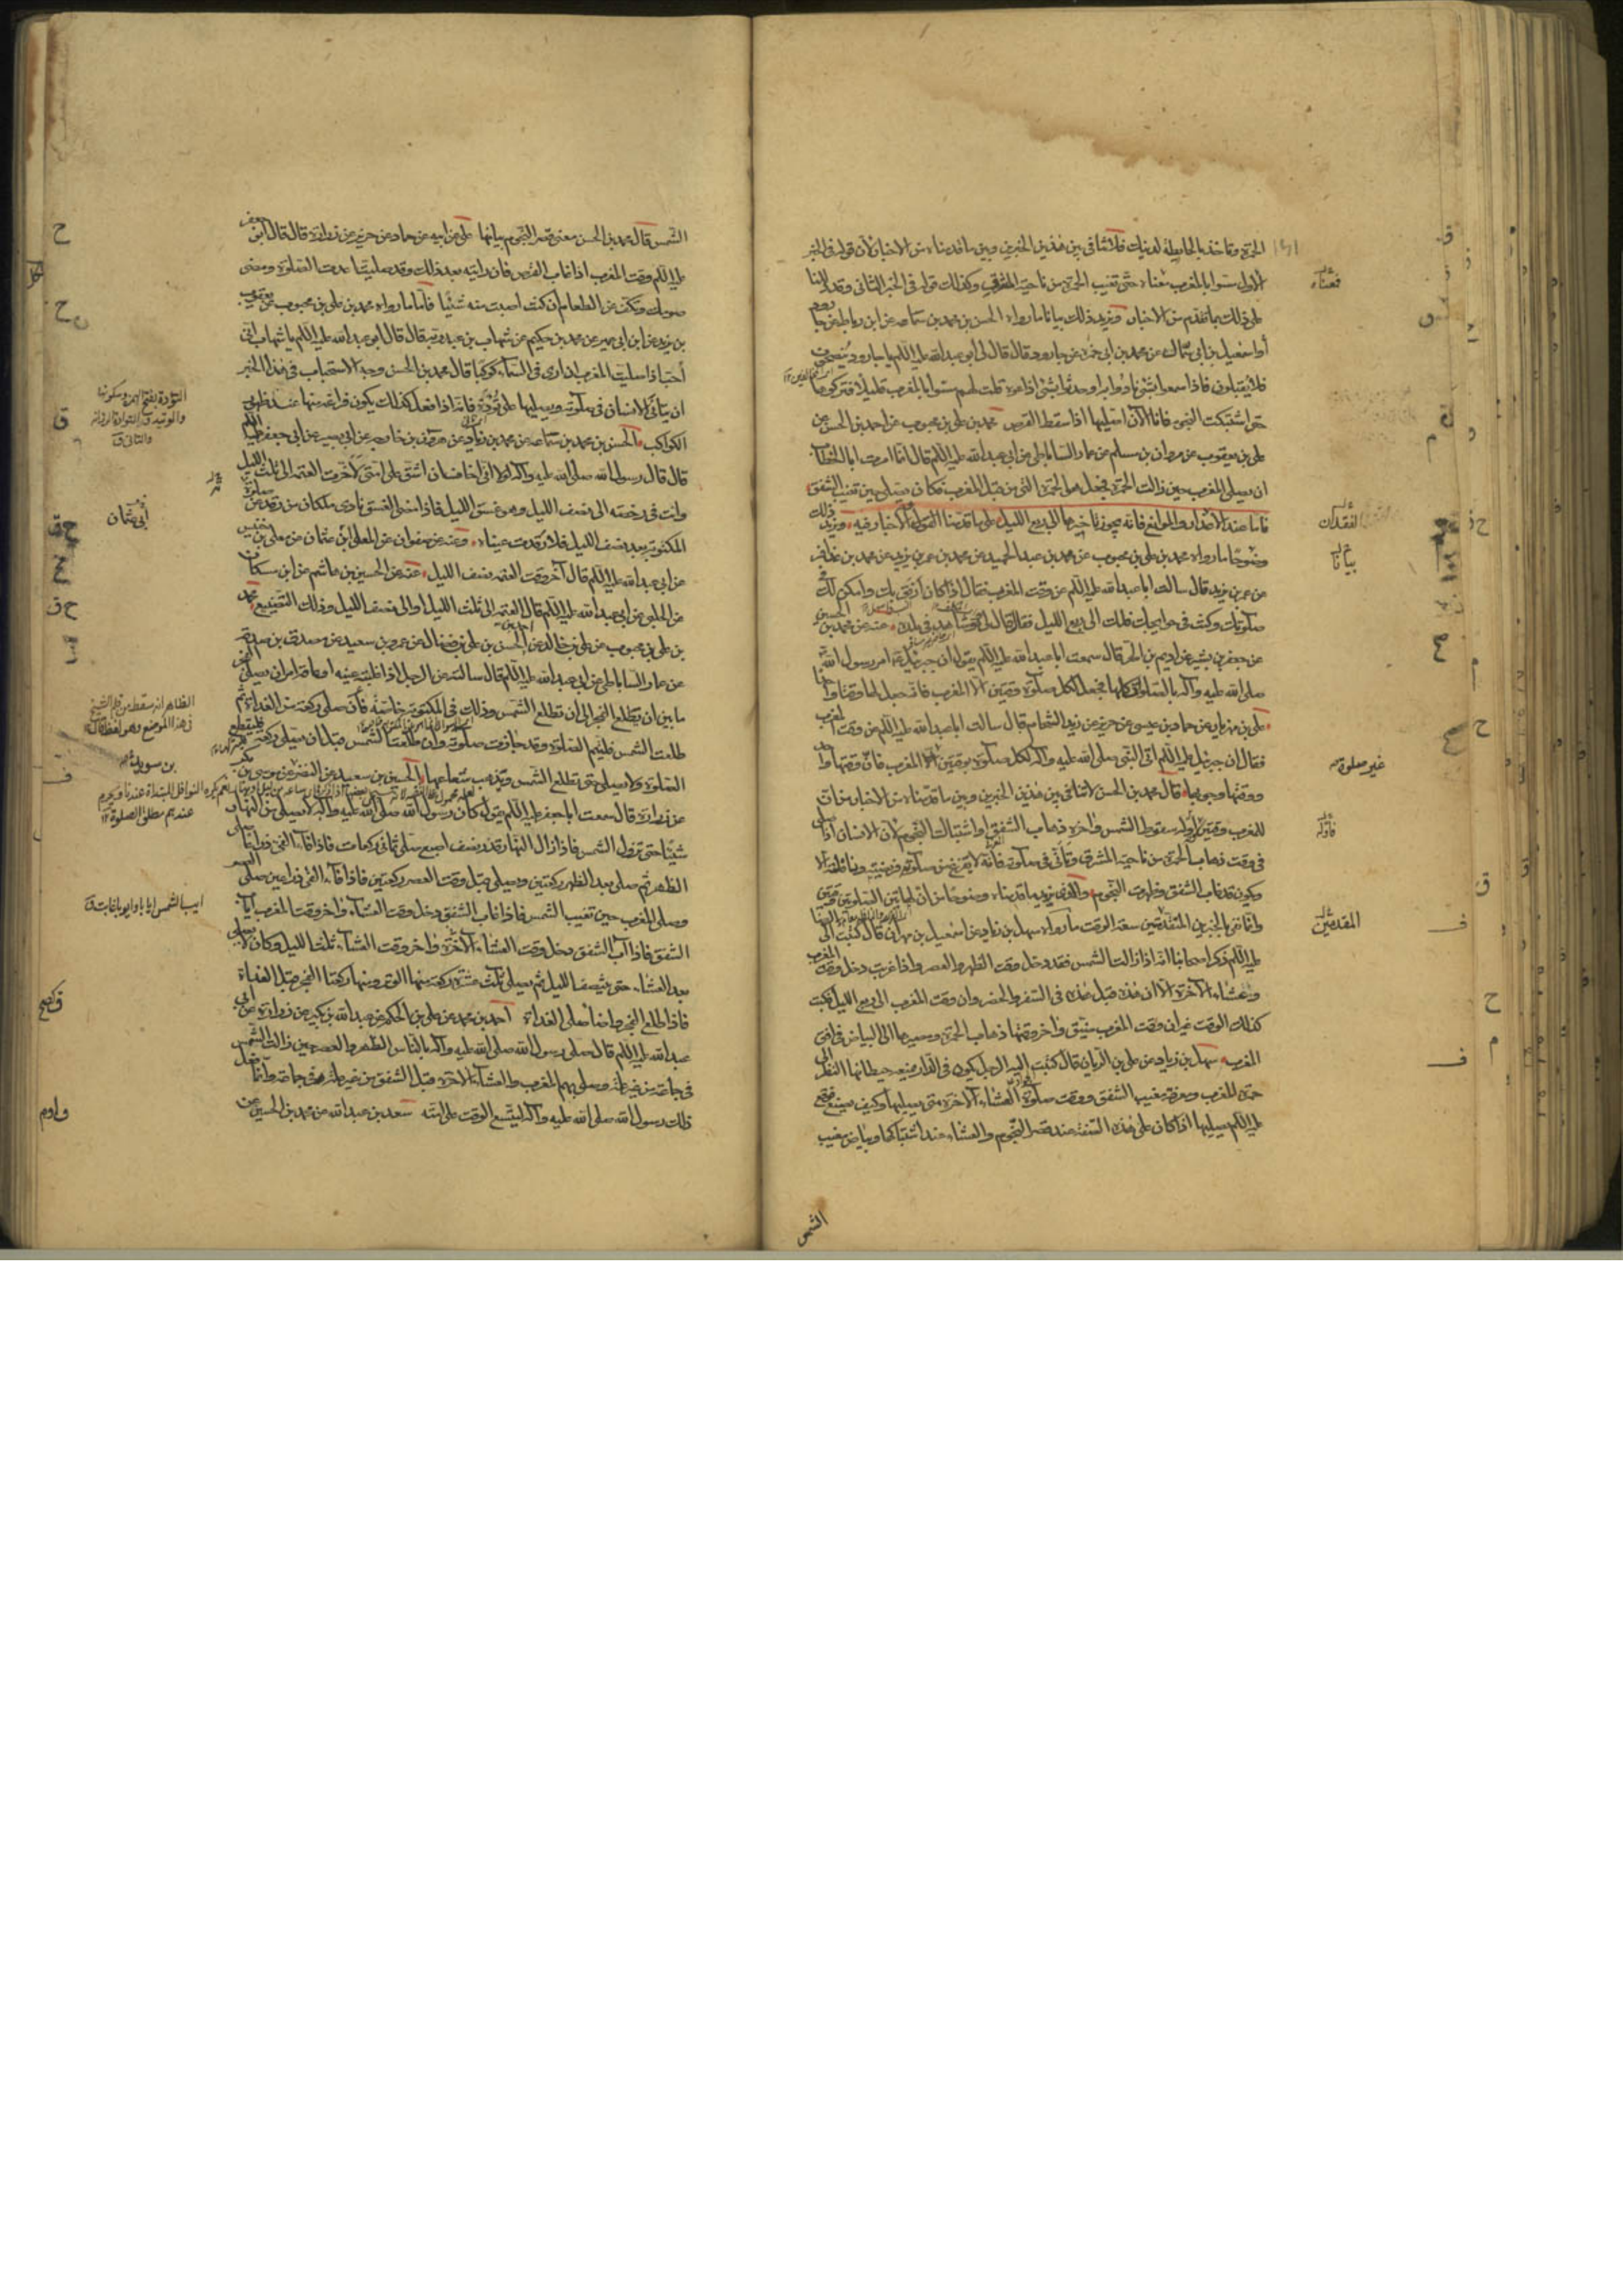 الحمرة وتاخذ بالحايطة لدينك فلا تنافي بين هذين الخبرين وبين ما قدمناه من الاخبار لأن قوله في الخبر
الاول مسوا بالمغرب معناه حتى تغيب الحمرة من ناحية المشرق وكذلك قوله في الخبر الثاني وقد دللنا
على ذلك بما تقدم من الاخبار ويزيد ذلك بيانا ما رواه الحسن بن محمد بن سماعه عن ابن رباط عن جارود
أو اسمعيل بن ابي سمال عن محمد بن ابي حمزة عن جارود قال قال لي ابو عبدالله عليه السلام يا جارود ينصحون
فلا يقبلون فاذا سمعوا بشئ نادوا به او حدثوا بشئ اذاعوه قلت لهم مسوا بالمغرب قليلا فتركوها
حتى اشتبكت النجوم فانا الآن اصليها اذا سقط القرص محمد بن علي بن محبوب عن احمد بن الحسن عن
علي بن يعقوب عن مروان بن مسلم عن عمار الساباطي عن ابي عبدالله عليه السلام قال انما امرت ابا الخطاب
ان يصلي المغرب حين زالت الحمرة فجعل هو الحمرة التي من قبل المغرب فكان يصلي حين تغيب الشفق
فاما عند الاعذار والموانع فانه يجوز تاخيرها الى ربع الليل على ما قدمنا القول والاخبار فيه ويزيد ذلك
وضوحا ما رواه محمد بن علي بن محبوب عن محمد بن عبد الحميد عن محمد بن عمر بن يزيد عن محمد بن عذافر
عن عمر بن يزيد قال سالت ابا عبدالله عليه السلام عن وقت المغرب فقال اذا كان ارفق بك وامكن لك
صلوتك وكنت في حوايجك فلك الى ربع الليل فقال قال لي وهو شاهد في بلده عنه عن محمد بن الحسين
عن جعفر بن بشير عن اديم بن الحر قال سمعت ابا عبدالله عليه السلام يقول ان جبرئيل امر رسول الله
صلى الله عليه وآله بالصلوة كلها فجعل لكل صلوة وقتين الا المغرب فانه جعل لها وقتا واحدا
علي بن مهزيار عن حماد بن عيسى عن حريز عن زيد الشحام قال سالت ابا عبدالله عليه السلام عن وقت المغرب
فقال ان جبرئيل عليه السلام اتى النبي صلى الله عليه وآله لكل صلوة بوقتين غير صلوة المغرب فان وقتها واحد
ووقتها وجوبها قال محمد بن الحسن لا تنافي بين هذين الخبرين وبين ما قدمناه من الاخبار من ان
للمغرب وقتين اوله سقوط الشمس واخره ذهاب الشفق او اشتباك النجوم لان الانسان اذا صلى
في وقت ذهاب الحمرة من ناحية المشرق وتأنى في صلوته فانه لا يفرغ من صلوته فريضته ونافلته الا
ويكون قد غاب الشفق وظهرت النجوم والذي يزيد ما قدمناه وضوحا من ان لهاتين الصلوتين وقتين
وانما نفى بالخبرين المتقدمين سعة الوقت ما رواه سهل بن زياد عن اسمعيل بن مهران قال كتبت الى الرضا
عليه السلام ذكر اصحابنا انه اذا زالت الشمس فقد دخل وقت الظهر والعصر واذا غربت دخل وقت المغرب
والعشاء الآخرة الا ان هذه قبل هذه في السفر والحضر وان وقت المغرب الى ربع الليل فكتب
كذلك الوقت غير ان وقت المغرب ضيق واخر وقتها ذهاب الحمرة ومصيرها الى البياض في افق
المغرب سهل بن زياد عن علي بن الريان قال كتبت اليه الرجل يكون في الدار يمنعه حيطانها النظر الى
حمرة المغرب ومعرفة مغيب الشفق ووقت صلوة العشاء الآخرة متى يصليها وكيف يصنع فوقع
عليه السلام يصليها اذا كان على هذه الصفة عند قصر النجوم والعشاء عند اشتباكها وبياض مغيب
الشمس
فمعناه
بيانا
غير صلوة
فاوله
المتقدمين
الشمس قال محمد بن الحسن معنى قصر النجوم بيانها علي عن ابيه عن حماد عن حريز عن زرارة قال قال ابو جعفر
عليه السلام وقت المغرب اذا غاب القرص فان رايته بعد ذلك وقد صليت اعدت الصلوة ومضى
صومك وتكف عن الطعام ان كنت اصبت منه شيئا فاما ما رواه محمد بن علي بن محبوب عن يعقوب
بن يزيد عن ابن ابي عمير عن محمد بن حكيم عن شهاب بن عبد ربه قال قال ابو عبدالله عليه السلام يا شهاب اني
أحب اذا صليت المغرب ان ارى في السماء كوكبا قال محمد بن الحسن وجه الاستحباب في هذا الخبر
ان يتأنى الانسان في صلوته ويصليها على تؤدة فانه اذا فعل كذلك يكون فراغه منها عند ظهور
الكواكب الحسن بن محمد بن سماعه عن محمد بن زياد عن هرون بن خارجه عن ابي بصير عن ابي جعفر عليه السلام
قال قال رسول الله صلى الله عليه وآله لولا اني اخاف ان اشق على امتي لاخرت العتمة الى ثلث الليل
وانت في رخصة الى نصف الليل وهو غسق الليل فاذا مضى الغسق نادى ملكان من رقد عن صلوة
المكتوبة بعد نصف الليل فلا رقدت عيناه وعنه عن صفوان عن المعلى أبي عثمان عن معلى بن خنيس
عن ابي عبدالله عليه السلام قال آخر وقت العتمة نصف الليل عنه عن الحسين بن هاشم عن ابن مسكان
عن الحلبي عن ابي عبدالله عليه السلام قال العتمة الى ثلث الليل او الى نصف الليل وذلك التضييع محمد
بن علي بن محبوب عن علي بن خالد عن احمد بن الحسن بن علي بن فضال عن عمرو بن سعيد عن مصدق بن صدقة
عن عمار الساباطي عن ابي عبدالله عليه السلام قال سالته عن الرجل اذا غلبته عينه او عاقه امر ان يصلي الفجر
ما بين ان يطلع الفجر الى ان تطلع الشمس وذلك في المكتوبة خاصة فان صلى ركعة من الغداة ثم
طلعت الشمس فليتم الصلوة وقد جازت صلوته وان طلعت الشمس قبل ان يصلي ركعة فليقطع
الصلوة ولا يصلي حتى تطلع الشمس ويذهب شعاعها الحسين بن سعيد عن النضر عن موسى بن بكر
عن زرارة قال سمعت ابا جعفر عليه السلام يقول كان رسول الله صلى الله عليه وآله لا يصلي من النهار
شيئا حتى تزول الشمس فاذا زال النهار قدر نصف اصبع صلى ثماني ركعات فاذا فاء الفئ ذراعا صلى
الظهر ثم صلى بعد الظهر ركعتين ويصلي قبل وقت العصر ركعتين فاذا فاء الفئ ذراعين صلى العصر
وصلى المغرب حين تغيب الشمس فاذا غاب الشفق دخل وقت العشاء واخر وقت المغرب اياب
الشفق فاذا آب الشفق دخل وقت العشاء الآخرة واخر وقت العشاء ثلث الليل وكان لا يصلي
بعد العشاء حتى ينتصف الليل ثم يصلي ثلث عشرة ركعة منها الوتر ومنها ركعتا الفجر قبل الغداة
فاذا طلع الفجر واضاء صلى الغداة احمد بن محمد عن علي بن الحكم عن عبدالله بن بكير عن زرارة عن ابي
عبدالله عليه السلام قال صلى رسول الله صلى الله عليه وآله بالناس الظهر والعصر حين زالت الشمس
في جماعة من غير علة وصلى بهم المغرب والعشاء الآخرة قبل الشفق من غير علة في جماعة وانما فعل
ذلك رسول الله صلى الله عليه وآله ليتسع الوقت على امته سعد بن عبدالله عن محمد بن الحسين عن
أبي عثمان
الظاهر انه سقط من قلم الشيخ
في هذا الموضع
بن سويد